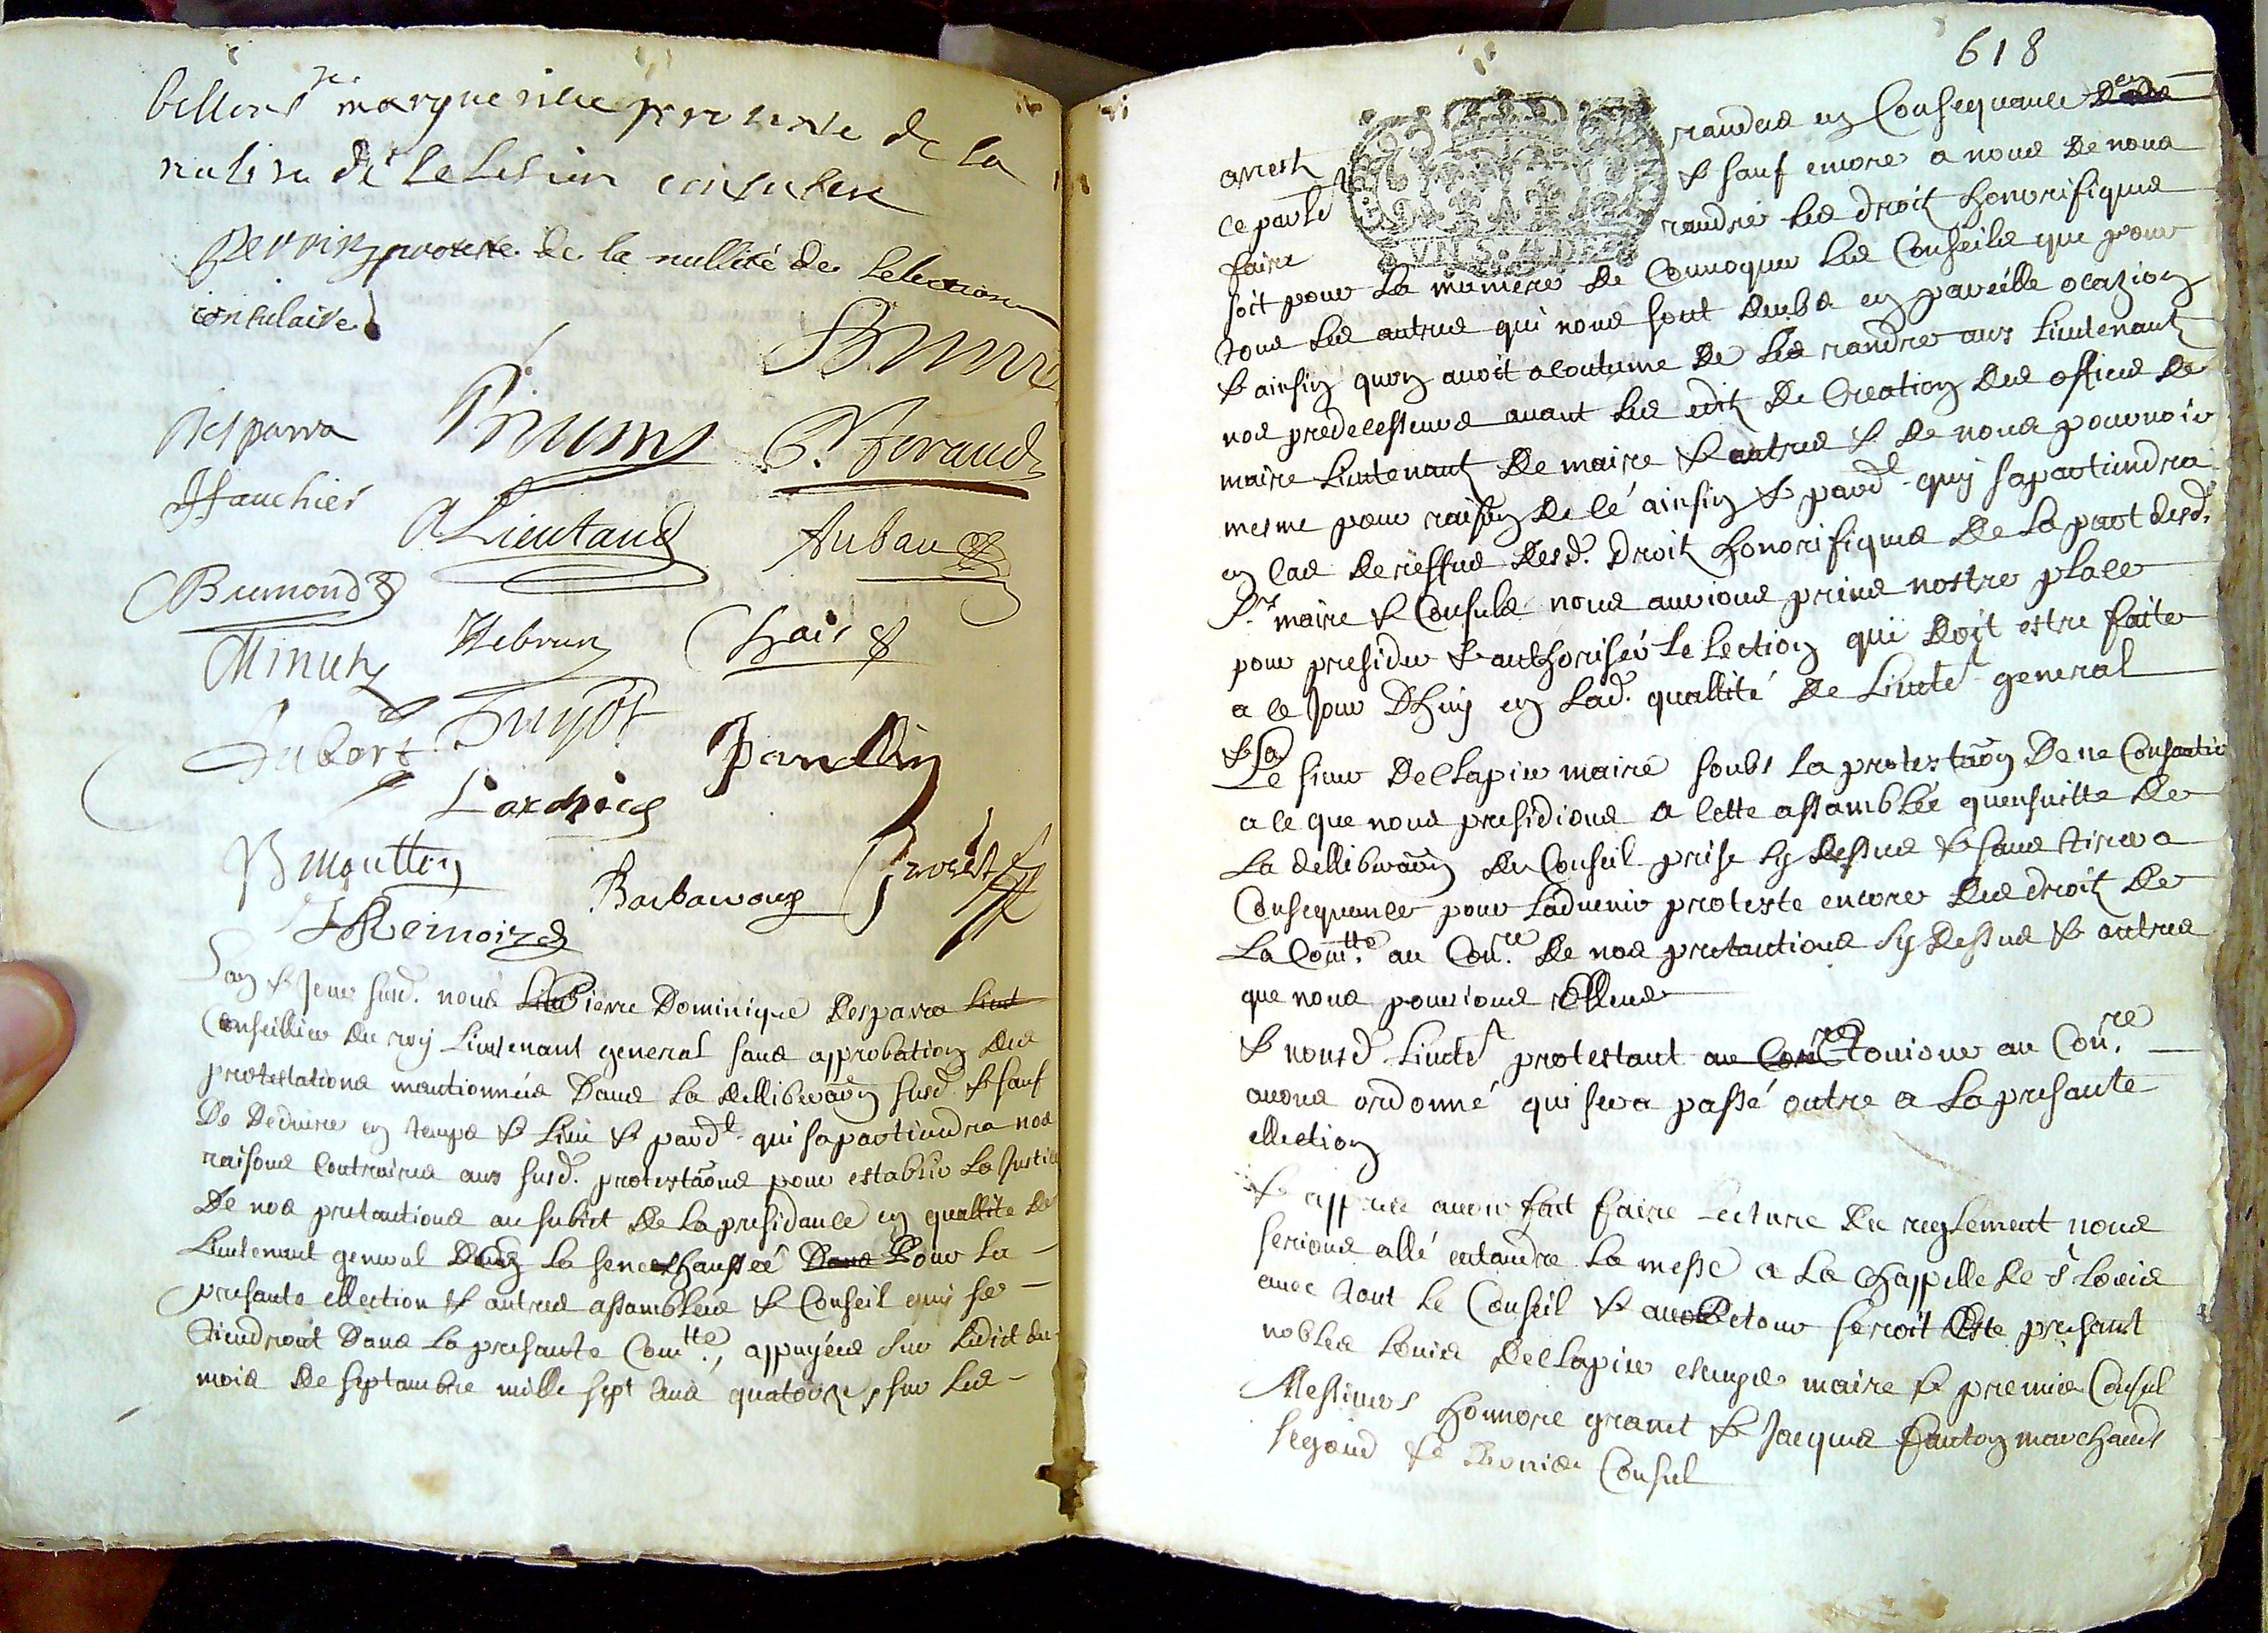 marguerite proteste de la
nulité de lelesion consulere
Perrin proteste de la nullité de Lelection
consulaire
Brun
Desparra
P. Feraud
Hauchier
A Lieutaud
Auban
Bremond
Minuty
Hebrun
Chais
Jubert
Guyot
Pandin
Lardier
B moutton
Barbaroux
Provest
Remoire
Lan & Jour susd. nous Pierre Dominique Desparra
Conseillier du roy Lieutenant general sans approbation des
protestations mantionnées Dans la delliberaõn susd. & sauf
De Deduire en temps & Lieu & pard.t qui sapartiendra nos
raisons contraires aux susd. protestaõns pour establir la Justice
De nos pretantions au subiet De la presidance en quallite de
Lieutenant general En la senechaussée Pour la
presante ellection & autres assamblées & Conseil quy se
tiendront Dans la presante Com.tté, appuyées sur Ledict du
mois De septambre mille sept cens quatorze, sur les
618
arrest randus en Consequance
ce par le & sauf encore a nous De nous
faire randre les droit honorifiques
UN S. 4 DE
soit pour la maniere De Convoquer les Conseils que pour
tous les autres qui nous sont deubs en pareille ocazion
& ainsin quon avoit acoutume De les randre aux Lieutenant
nos predecesseurs avant les edit De Creation des offices De
maire Lieutenant De maire & autres & De nous pourvoir
mesme pour raison De cé ainsin & pard.t quy sapartiendra
en cas De reffus desd. droit honorifiques De la part desd.
s.rs maire & Consuls nous aurions prins nostre place
pour presider & authoriser Lelection qui doit estre faite
a ce Jour Dhuy en lad. quallité De Lieute.t general
& la
Le sieur Dellapier maire soubs la protestaõn De ne Consantir
a ce que nous presidions a cette assamblée quensuitte De
la delliberaõn du Conseil prise sy dessus & sans tirer a
Consequance pour Ladvenir proteste encore des droit De
La Com.tté au Con.re De nos pretantions sy dessus & autres
que nous pourions
& nousd. Lieute.t protestant toujour au Con.re
avons ordonné qui sera passé outre a la presante
ellection
& appres avoir fait faire Lecture du reglement nous
serions allé entandre la messe a la chappelle de s.t Louis
avec tout le Conseil & au Retour seroit Este presant
nobles Louis Dellapier escuyer maire & premier Consul
Messieurs honnore granet & Jacques fanton marchands
segond & Dernier Consul